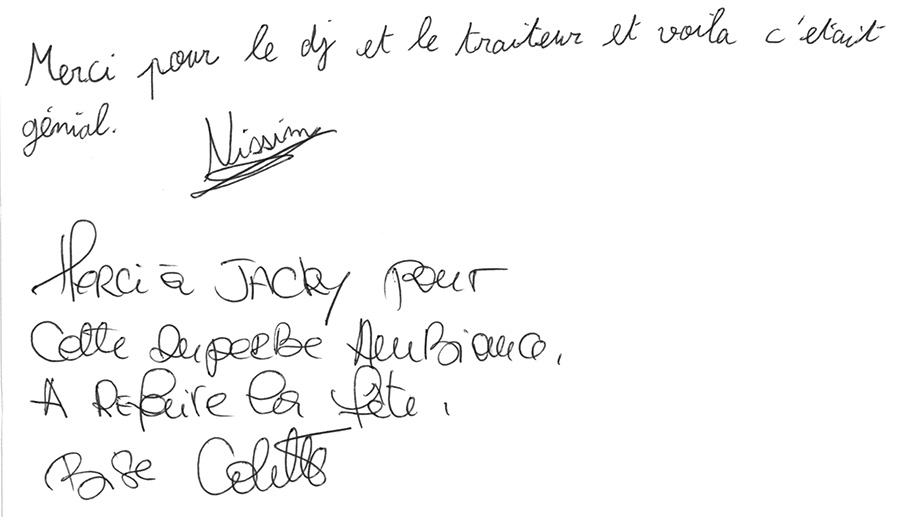 Merci pour le dj et le traiteur et voila c'était
génial.
Nissim
Merci à JACKY pour
Cette superbe AmBiance.
A REfaire la fête.
Bise Colette